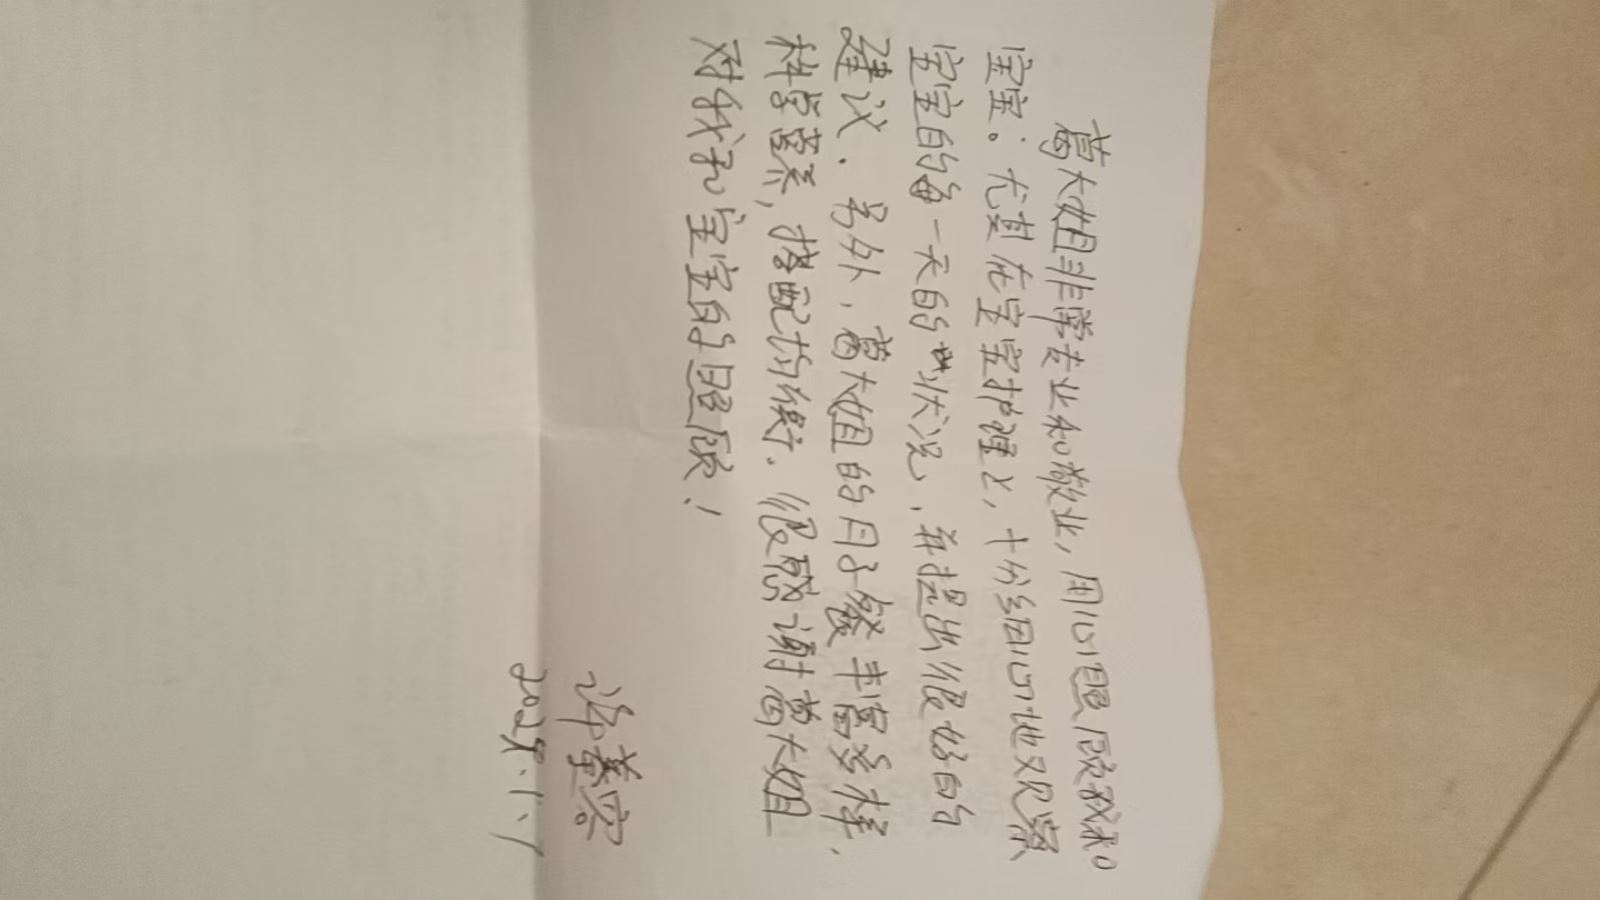 葛大姐非常专业和敬业，用心照顾我和
宝宝。尤其在宝宝护理上，十分细心地观察
宝宝的每一天的状况，并提出很好的
建议。另外，葛大姐的月子餐丰富多样，
科学营养，搭配均衡。很感谢葛大姐
对我和宝宝的照顾！
许